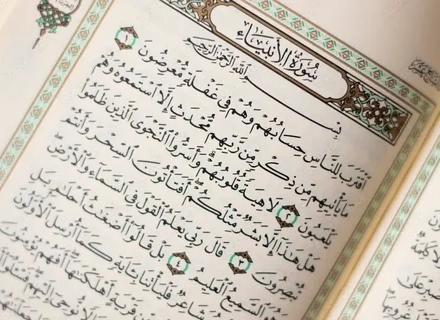 سُورَةُ الأَنْبِيَاءِ
بِسْمِ اللَّهِ الرَّحْمَٰنِ الرَّحِيمِ
ٱقْتَرَبَ لِلنَّاسِ حِسَابُهُمْ وَهُمْ فِي غَفْلَةٍ مُّعْرِضُونَ ١
مَا يَأْتِيهِم مِّن ذِكْرٍ مِّن رَّبِّهِم مُّحْدَثٍ إِلَّا ٱسْتَمَعُوهُ وَهُمْ
يَلْعَبُونَ ٢ لَاهِيَةً قُلُوبُهُمْ وَأَسَرُّوا۟ ٱلنَّجْوَى ٱلَّذِينَ ظَلَمُوا۟
هَلْ هَٰذَا إِلَّا بَشَرٌ مِّثْلُكُمْ أَفَتَأْتُونَ ٱلسِّحْرَ وَأَنتُمْ
تُبْصِرُونَ ٣ قَالَ رَبِّي يَعْلَمُ ٱلْقَوْلَ فِي ٱلسَّمَاءِ وَٱلْأَرْضِ
ٱلسَّمِيعُ ٱلْعَلِيمُ ٤ بَلْ قَالُوا۟ أَضْغَاثُ أَحْلَامٍ بَلِ
شَاعِرٌ فَلْيَأْتِنَا بِآيَةٍ كَمَا أُرْسِلَ ٱلْأَوَّلُونَ
قَرْيَةٍ أَهْلَكْنَاهَا أَفَهُمْ يُؤْمِنُونَ
نُّوحِي إِلَيْهِمْ